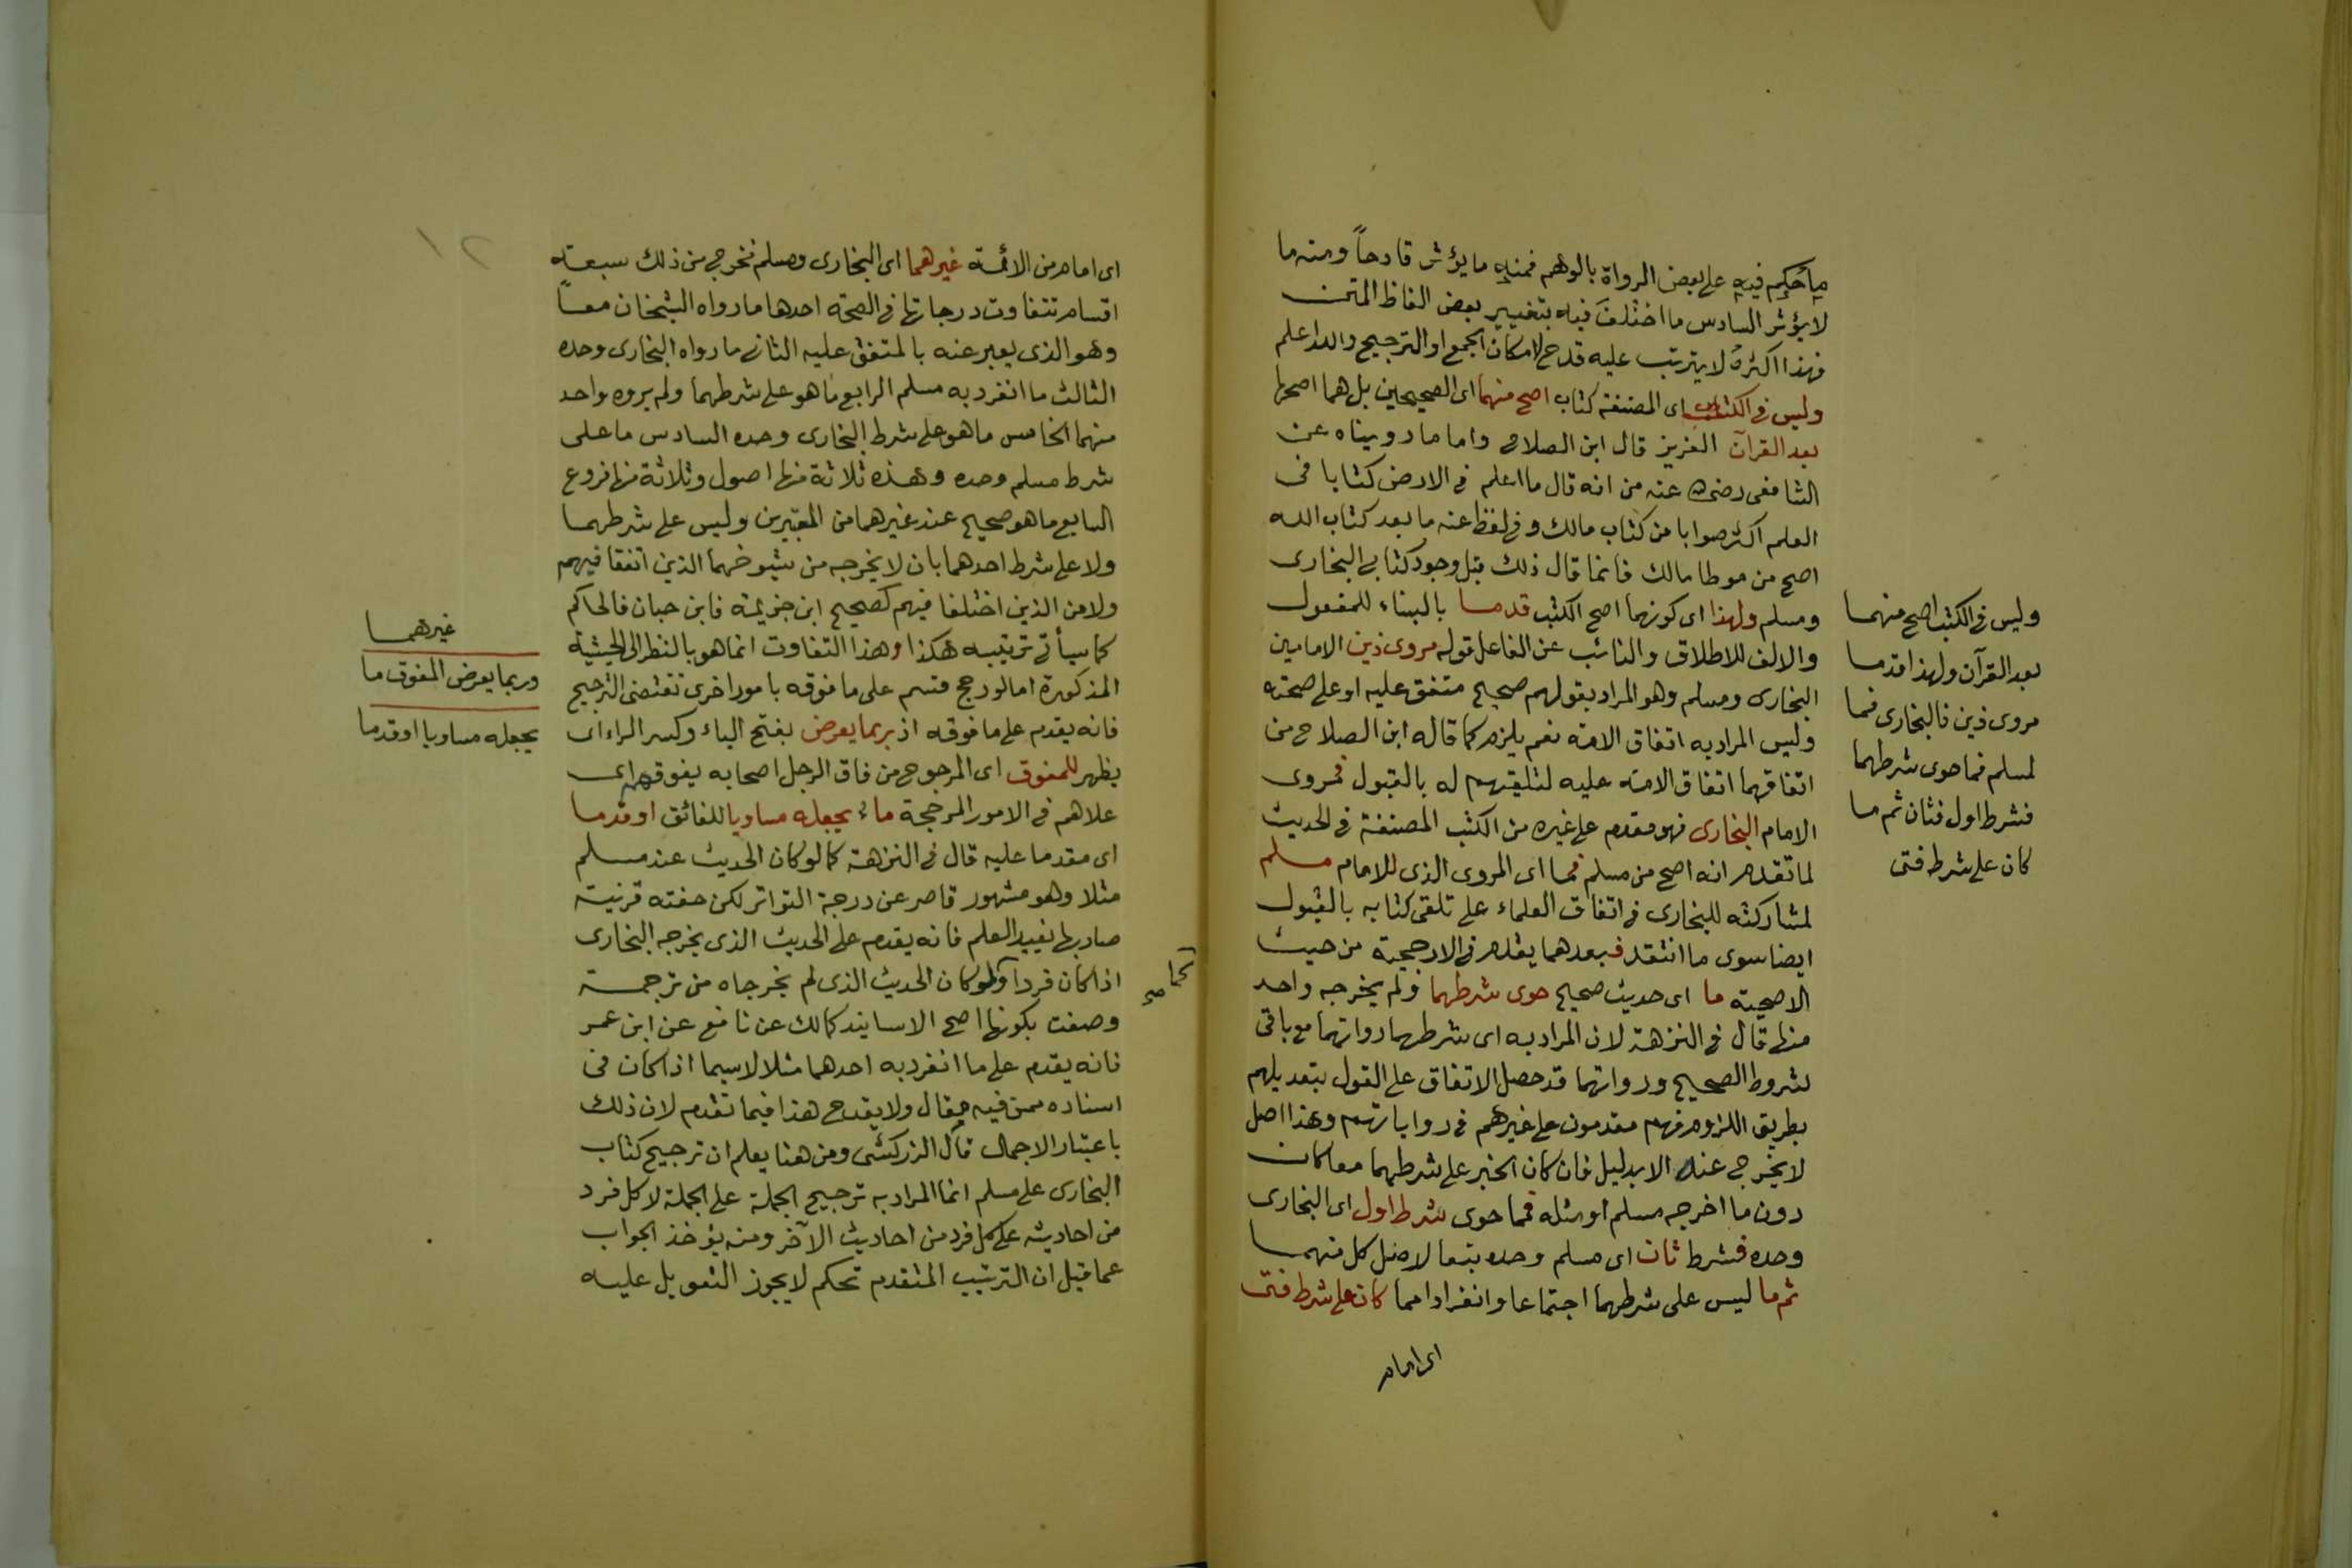 ما حُكِم فيهِ على بعض الرواة بالوهم فمنهِ ما يؤثر قادحاً ومنه ما
لا يؤثر السادس ما اختُلفَ فيه بتغيير بعض الفاظ المتن
فهذا اكثرهُ لا يترتب عليه قدح لامكان الجمع او الترجيح والله اعلم
وليس في الكتب اى المصنفة كتاب اصح منهما اى الصحيحين بل هما اصحها
بعد القرآن العزيز قال ابن الصلاح واما ما رويناه عن
الشافعى رضى الله عنه من انه قال ما اعلم في الارض كتابا فى
العلم اكثر صوابا من كتاب مالك وفى لفظ عنه ما بعد كتاب الله
اصح من موطا مالك فانما قال ذلك قبل وجود كتابى البخارى
ومسلم ولهذا اى كونهما اصح الكتب قدما بالبناء للمفعول
والالف للاطلاق والنائب عن الفاعل قوله مروى ذين الامامين
البخارى ومسلم وهو المراد بقولهم صحيح متفق عليه او على صحته
وليس المراد به اتفاق الامة نعم يلزم كما قاله ابن الصلاح من
اتفاقهما اتفاق الامة عليه لتلقيهم له بالقبول فمروى
الامام البخارى فهو مقدم على غيره من الكتب المصنفة فى الحديث
لما تقدم انه اصح من مسلم فما اى المروى الذى للامام مسلم
لمشاركته للبخارى فى اتفاق العلماء على تلقى كتابه بالقبول
ايضا سوى ما انتقد فبعدهما يقدم فى الارجحية من حيث
الاصحية ما اى حديث صحيح حوى شرطهما ولم يخرجه واحد
منهما قال فى النزهة لان المراد به اى شرطهما رواتهما مع باقى
شروط الصحيح ورواتهما قد حصل الاتفاق على القول بتعديلهم
بطريق اللزوم فهم مقدمون على غيرهم فى رواياتهم وهذا اصل
لا يخرج عنه الا بدليل فان كان الخبر على شرطهما معا كان
دون ما اخرجه مسلم او مثله فما حوى شرط اول اى البخارى
وحده فشرط ثان اى مسلم وحده تبعا لاصل كل منهما
ثم ما ليس على شرطهما اجتماعا وانفرادا مما كان على شرط فتى
اى امام
وليس فى الكتب اصح منهما
بعد القرآن ولهذا قدما
مروى ذين فالبخارى فما
لمسلم فما حوى شرطهما
فشرط اول فثان ثم ما
كان على شرط فتى
١٢
اى امام من الائمة غيرهما اى البخارى ومسلم فخرج من ذلك سبعة
اقسام تتفاوت درجاتها فى الصحة احدها ما رواه الشيخان معاً
وهو الذى يعبر عنه بالمتفق عليه الثانى ما رواه البخارى وحده
الثالث ما انفرد به مسلم الرابع ما هو على شرطهما ولم يروه واحد
منهما الخامس ما هو على شرط البخارى وحده السادس ما على
شرط مسلم وحده وهذه ثلاثة منها اصول وثلاثة منها فروع
السابع ما هو صحيح عند غيرهما من المعتبرين وليس على شرطهما
ولا على شرط احدهما بان لا يخرجه من شيوخهما الذين اتفقا فيهم
ولا من الذين اختلفا فيهم كصحيح ابن خزيمة فابن حبان فالحاكم
كما سيأتى ترتيبه هكذا وهذا التفاوت انما هو بالنظر الى الحيثية
المذكورة اما لو رجح قسم على ما فوقه بامور اخرى تقتضى الترجيح
فانه يقدم على ما فوقه اذ ربما يعرض بفتح الياء وكسر الراء اى
يظهر للمفوق اى المرجوح من فاق الرجل اصحابه يفوقهم اى
علاهم فى الامور المرجحة ما يجعله مساويا للفائق او قدما
اى مقدما عليه قال فى النزهة كما لو كان الحديث عند مسلم
مثلا وهو مشهور قاصر عن درجة التواتر لكن حفته قرنية
صار بها يفيد العلم فانه يقدم على الحديث الذى يخرجه البخارى
اذا كان فردا ولو كان الحديث الذى لم يخرجاه من ترجمة
وصفت بكونها اصح الاسانيد كمالك عن نافع عن ابن عمر
فانه يقدم على ما انفرد به احدهما مثلا لا سيما اذا كان فى
اسناده من فيه مقال ولا يقدح هذا فيما تقدم لان ذلك
باعتبار الاجمال قال الزركشى ومن هنا يعلم ان ترجيح كتاب
البخارى على مسلم انما المراد به ترجيح الجملة على الجملة لا كل فرد
من احاديثه على كل فرد من احاديث الآخر ومنه يؤخذ الجواب
عما قيل ان الترتيب المتقدم تحكم لا يجوز التعويل عليه
كما صح
غيرهما
وربما يعرض للمفوق ما
يجعله مساويا او قدما